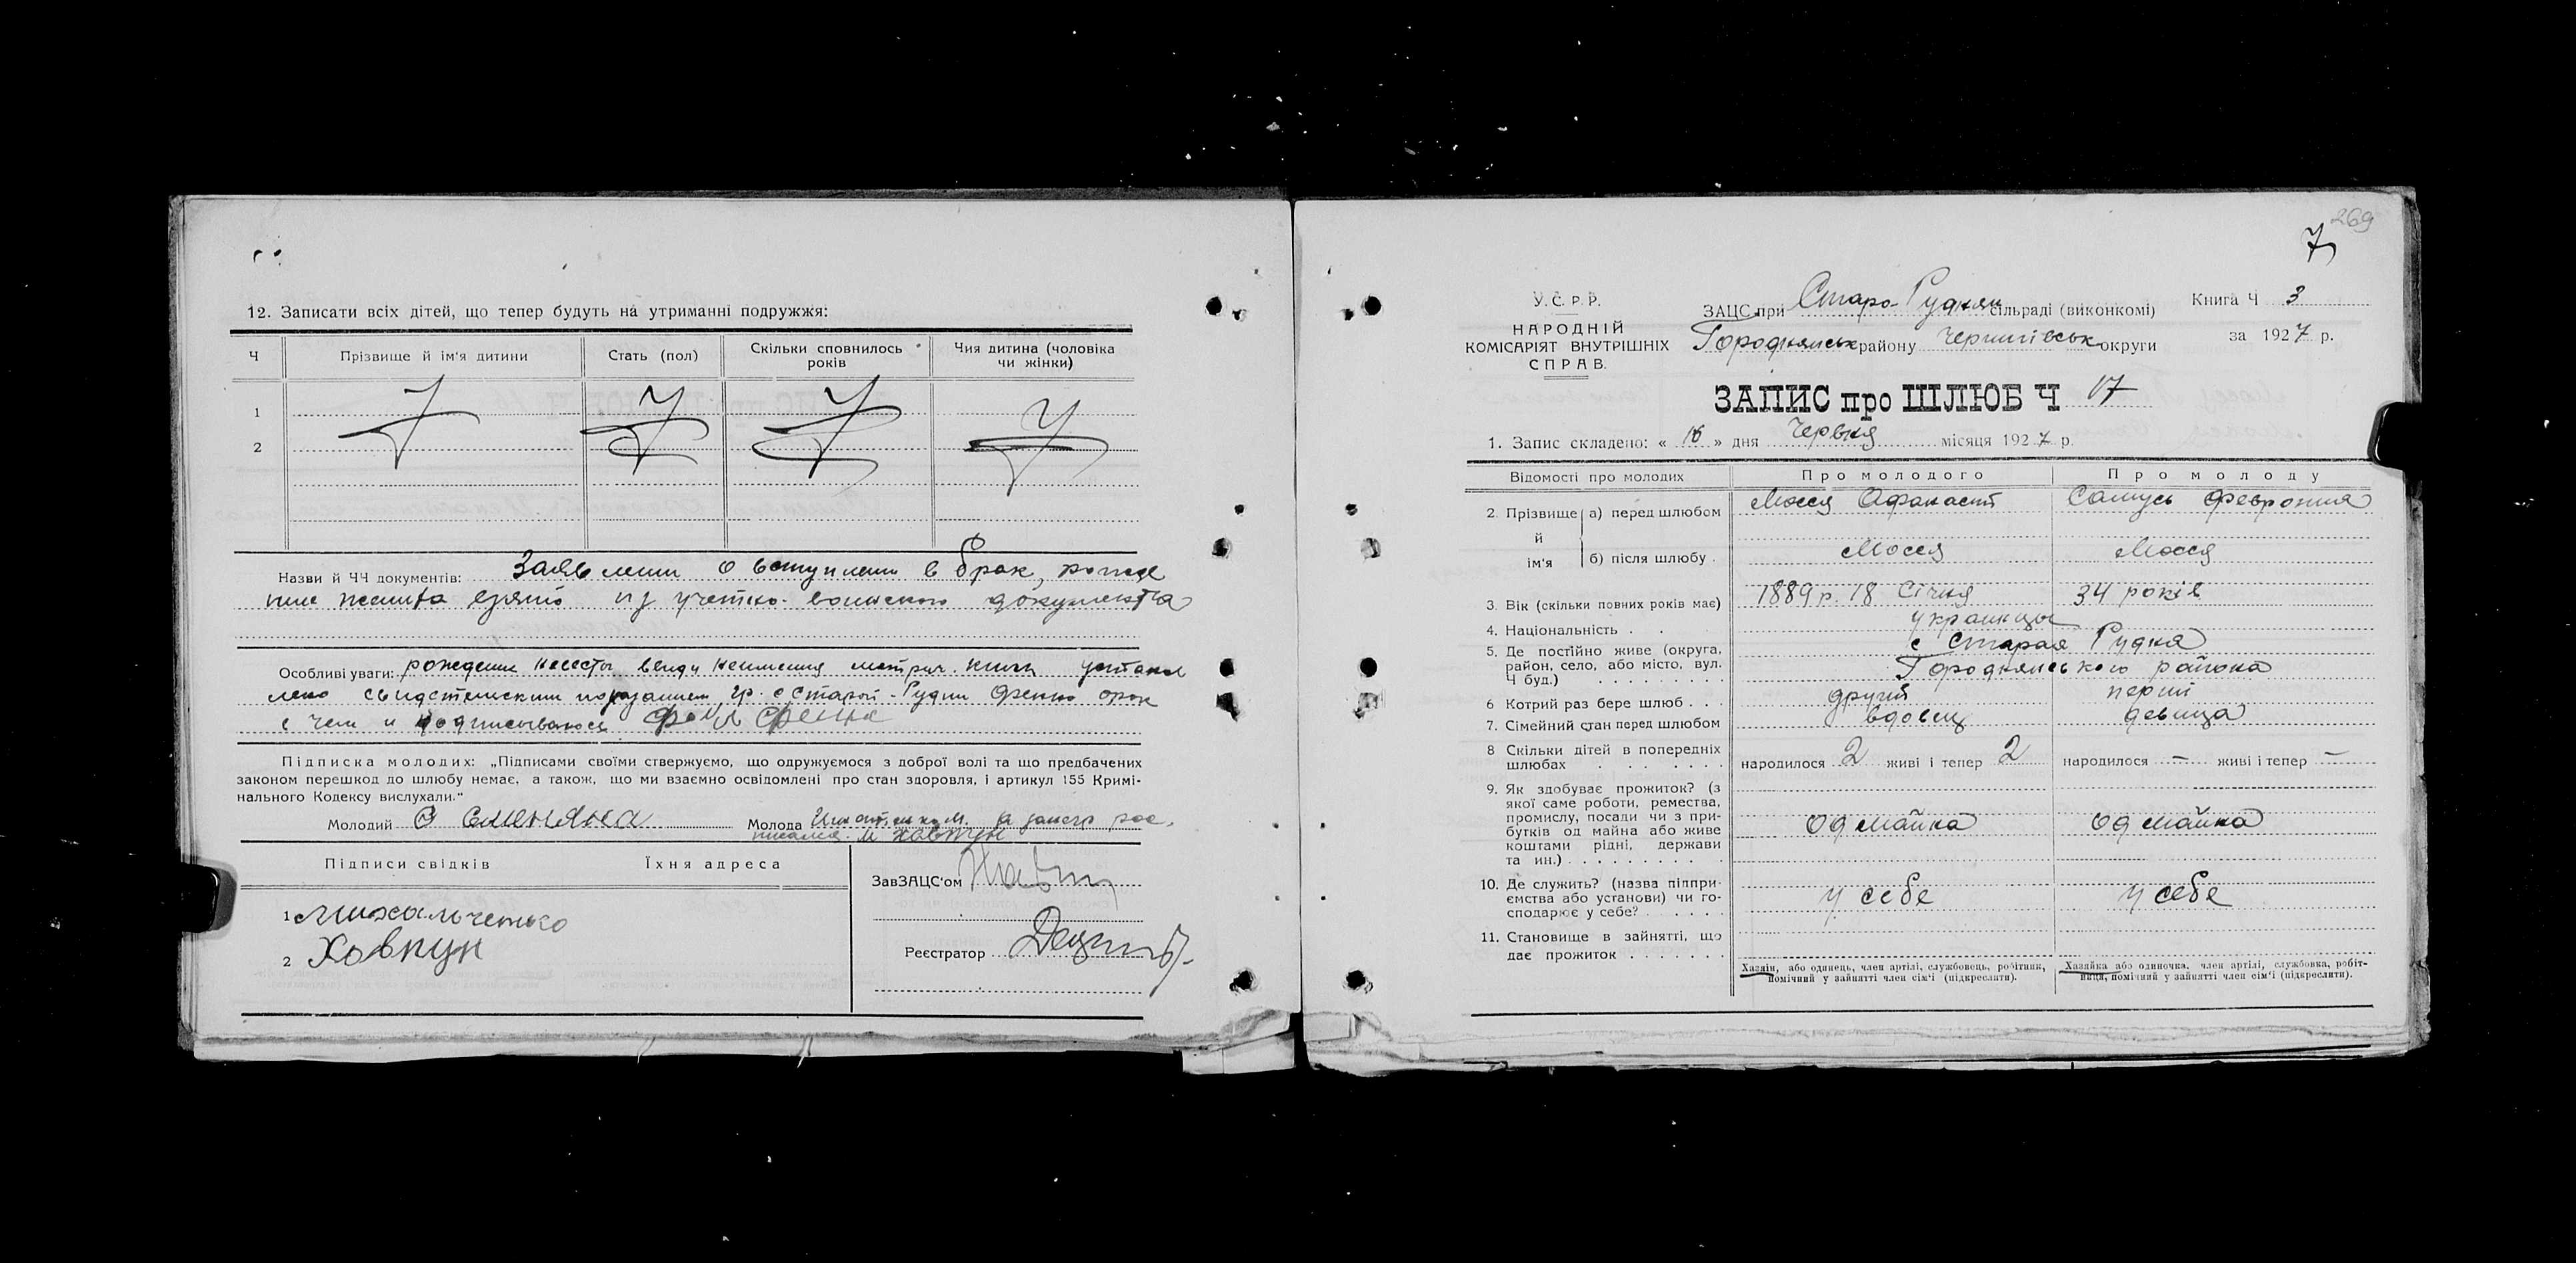 12. Записати всіх дітей, що тепер будуть на утриманні подружжя:
Ч
Прізвище й ім'я дитини
Стать (пол)
Скільки сповнилось
років
Чия дитина (чоловіка
чи жінки)
1
2
Назви й ЧЧ документів: о вступлении в брак,
из учетно-воинского документа
Особливі уваги: рождения невесты ввиду неимения метрич. книги
гр. с Старой-Рудни
в чем и подписываюсь
Підписка молодих: „Підписами своїми ствержуємо, що одружуємося з доброї волі та що предбачених
законом перешкод до шлюбу немає, а також, що ми взаємно освідомлені про стан здоровля, і артикул 155 Кримі-
нального Кодексу вислухали."
Молодий Молода
Ховпун
Підписи свідків
Їхня адреса
1 Михальченко
2 Ховпун
ЗавЗАЦС'ом
Реєстратор
269
7
У.С.Р.Р.
НАРОДНІЙ
КОМІСАРІЯТ ВНУТРІШНІХ
СПРАВ.
ЗАЦС при Старо-Руднян сільраді (виконкомі)
Городнянськ району Чернигівськ округи
Книга Ч 3
за 1927 р.
ЗАПИС про ШЛЮБ Ч 17
1. Запис складено: « 16 » дня Червня місяця 1927 р.
Відомості про молодих
Про молодого
Про молоду
2. Прізвище й ім'я
а) перед шлюбом
Мосся Афанасий
Самусь Феврония
б) після шлюбу.
Мосся
Мосся
3. Вік (скільки повних років має)
1889 р. 18 Січня
34 років
4. Національність . .
украинцы
5. Де постійно живе (округа,
район, село, або місто, вул.
Ч буд.)
с Старая Рудня
Городнянського района
6 Котрий раз бере шлюб . . .
другий
перши
7. Сімейний стан перед шлюбом
вдовец
девица
8 Скільки дітей в попередніх
шлюбах
народилося 2 живі і тепер 2
народилося — живі і тепер —
9. Як здобуває прожиток? (з
якої саме роботи, ремества,
промислу, посади чи з при-
бутків од майна або живе
коштами рідні, держави
та ин.)
Од майна
Од майна
10. Де служить? (назва підпри-
ємства або установи) чи го-
сподарює у себе?
у себе
у себе
11. Становище в зайнятті, що
дає прожиток
Хазяїн, або одинець, член артілі, службовець, робітник,
помічний у зайнятті член сім'ї (підкреслити).
Хазяйка або одиночка, член артілі, службовка, робіт-
ниця, помічний у зайнятті член сім'ї (підкреслити).